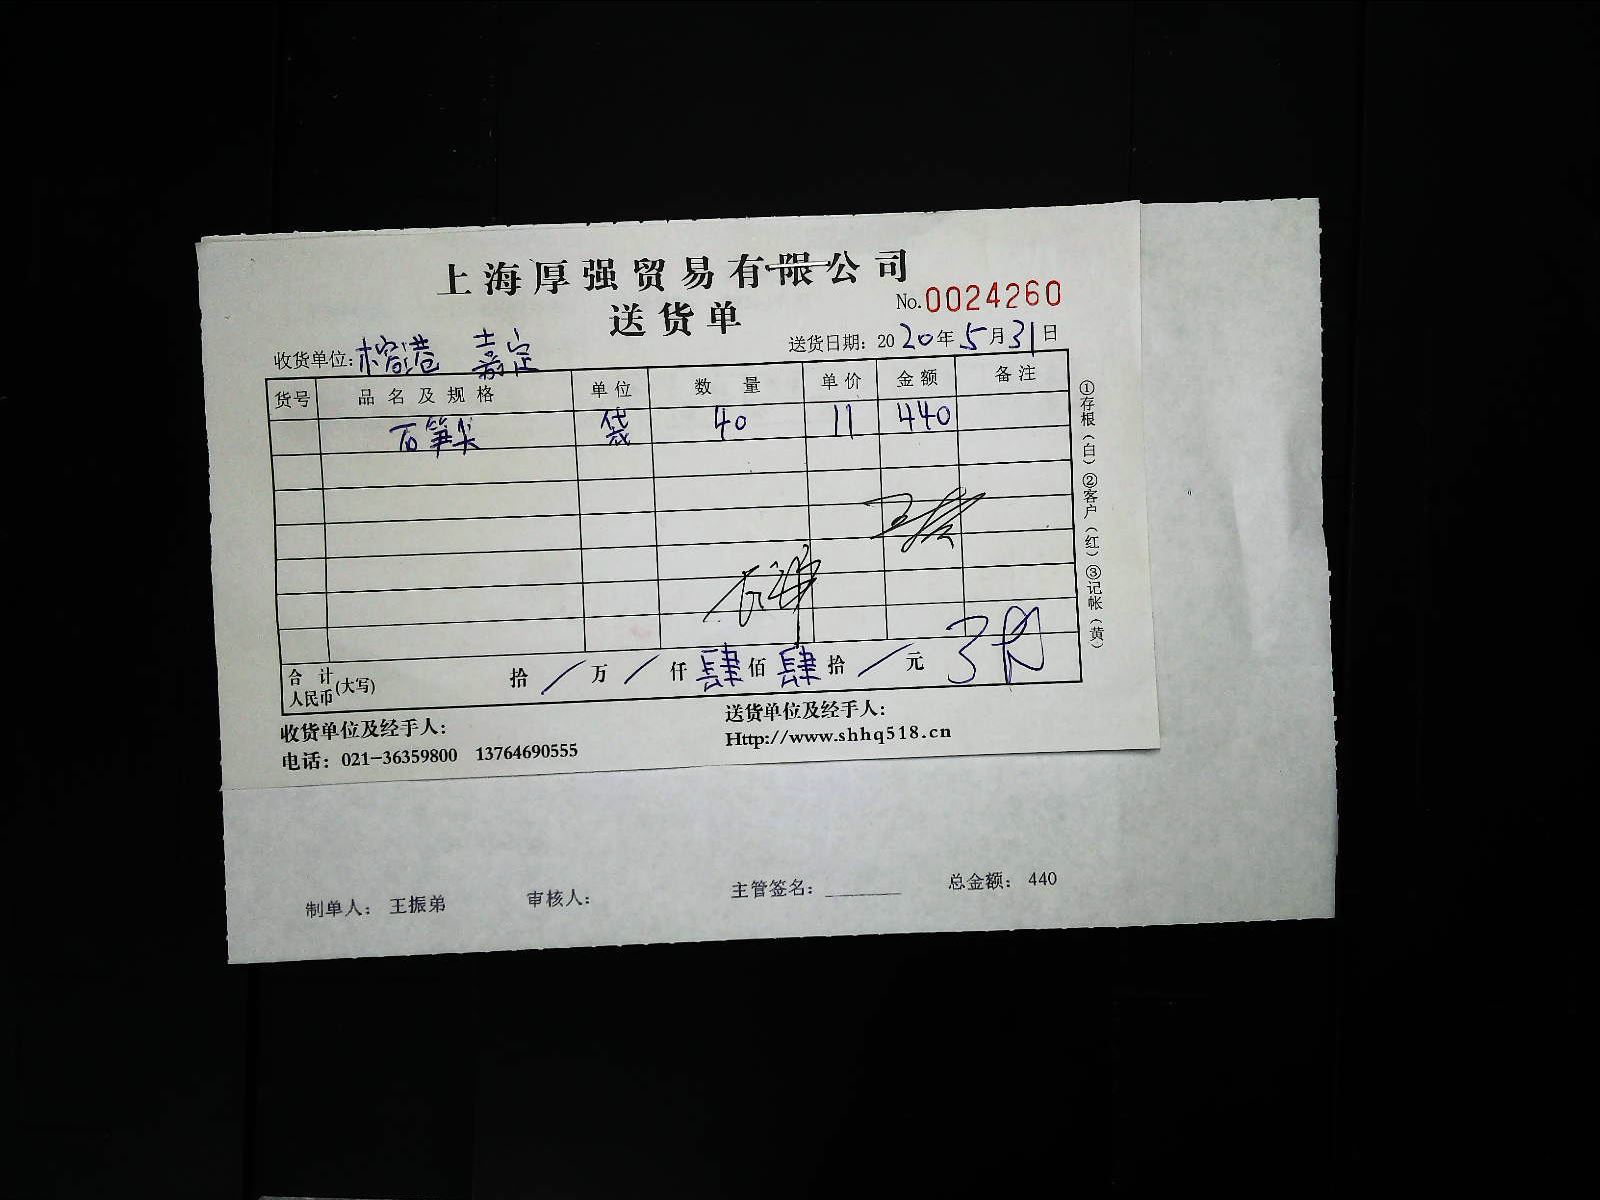 上海厚强贸易有限公司
送货单
No.0024260
收货单位:榕港 嘉定
送货日期: 2020年5月31日
货号 品名及规格 单位 数量 单价 金额 备注
石笋尖 袋 40 11 440
合计人民币(大写) 拾/万/仟肆佰肆拾/元
收货单位及经手人:
送货单位及经手人:
电话: 021-36359800 13764690555
Http://www.shhq518.cn
①存根(白)②客户(红)③记帐(黄)
制单人: 王振弟 审核人: 主管签名: 总金额: 440